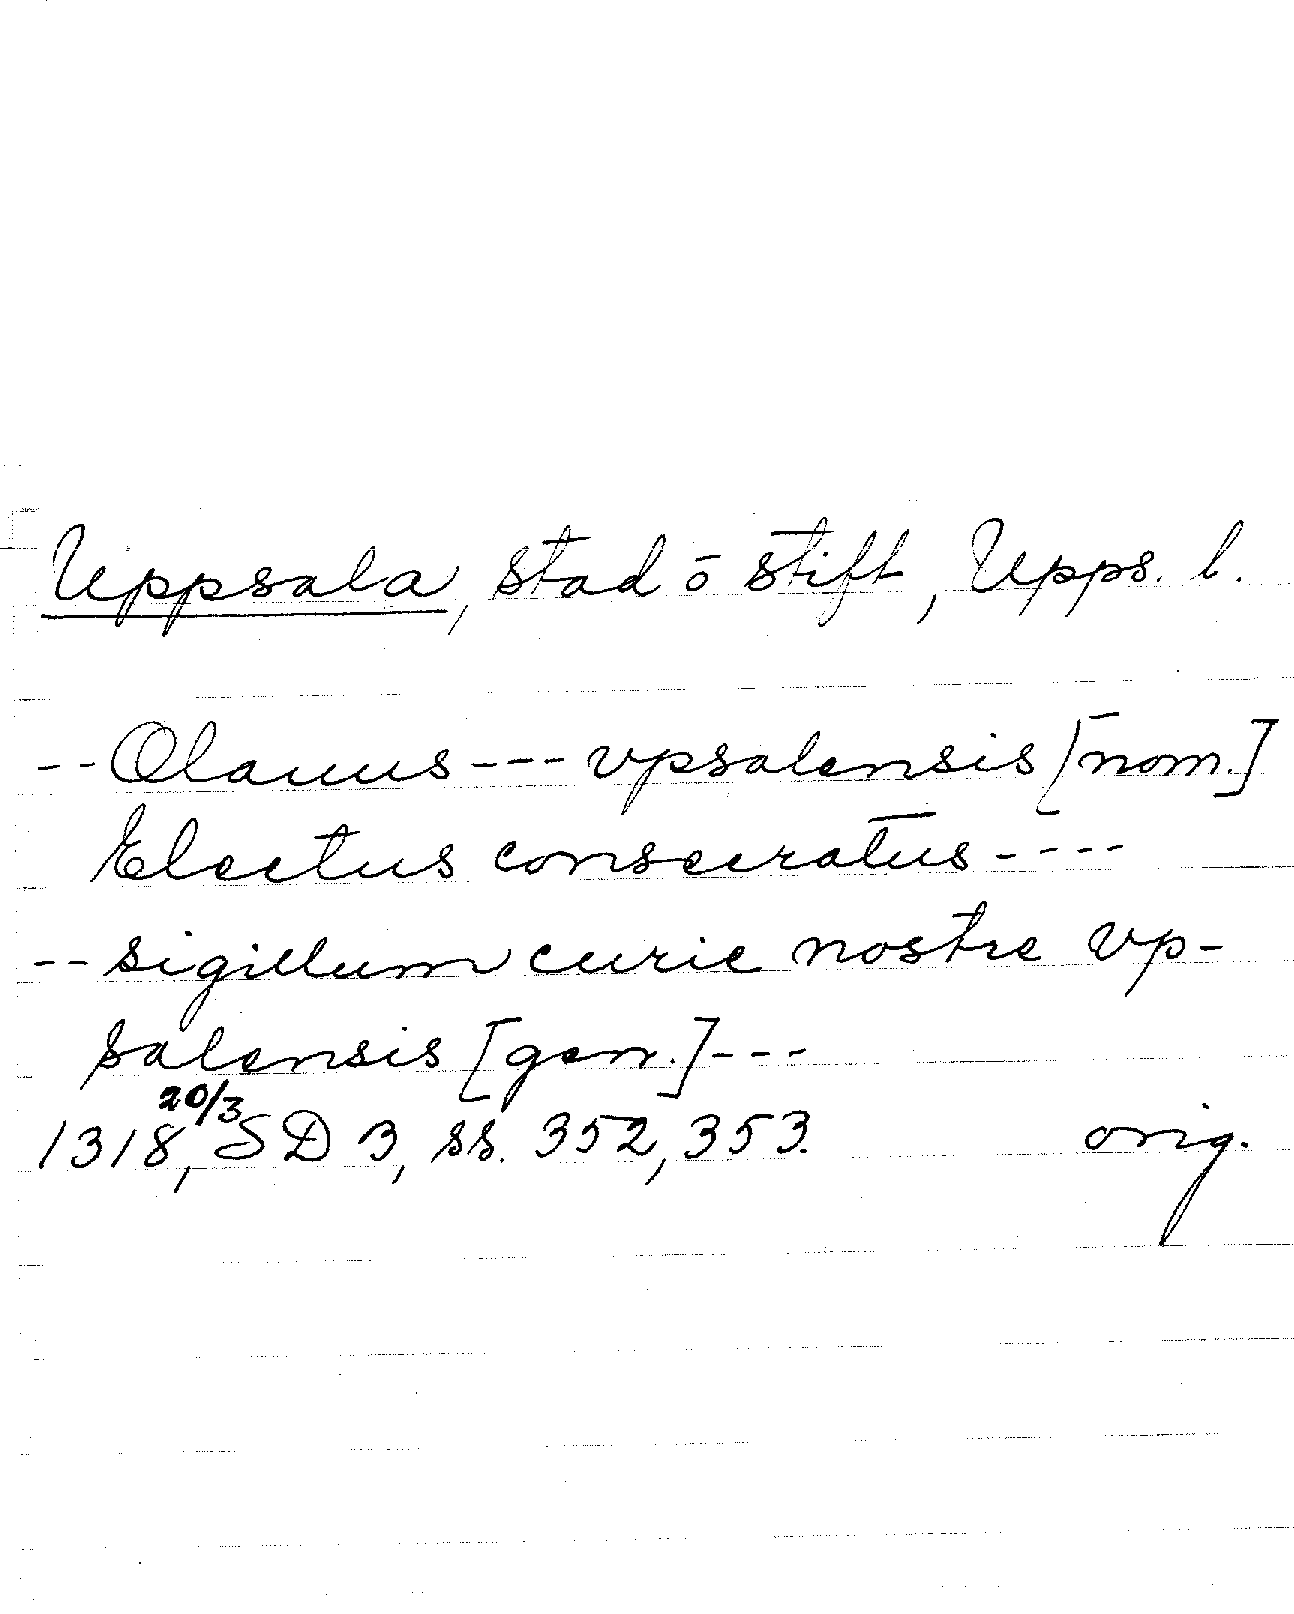 Uppsala, stad ō stift, Upps. l.
--Olauus---vpsalensis [nom.]
Electus consecratus----
--sigillum curie nostre vp-
salensis [gen.]---
1318, 20/3 SD 3, ss. 352, 353. orig.